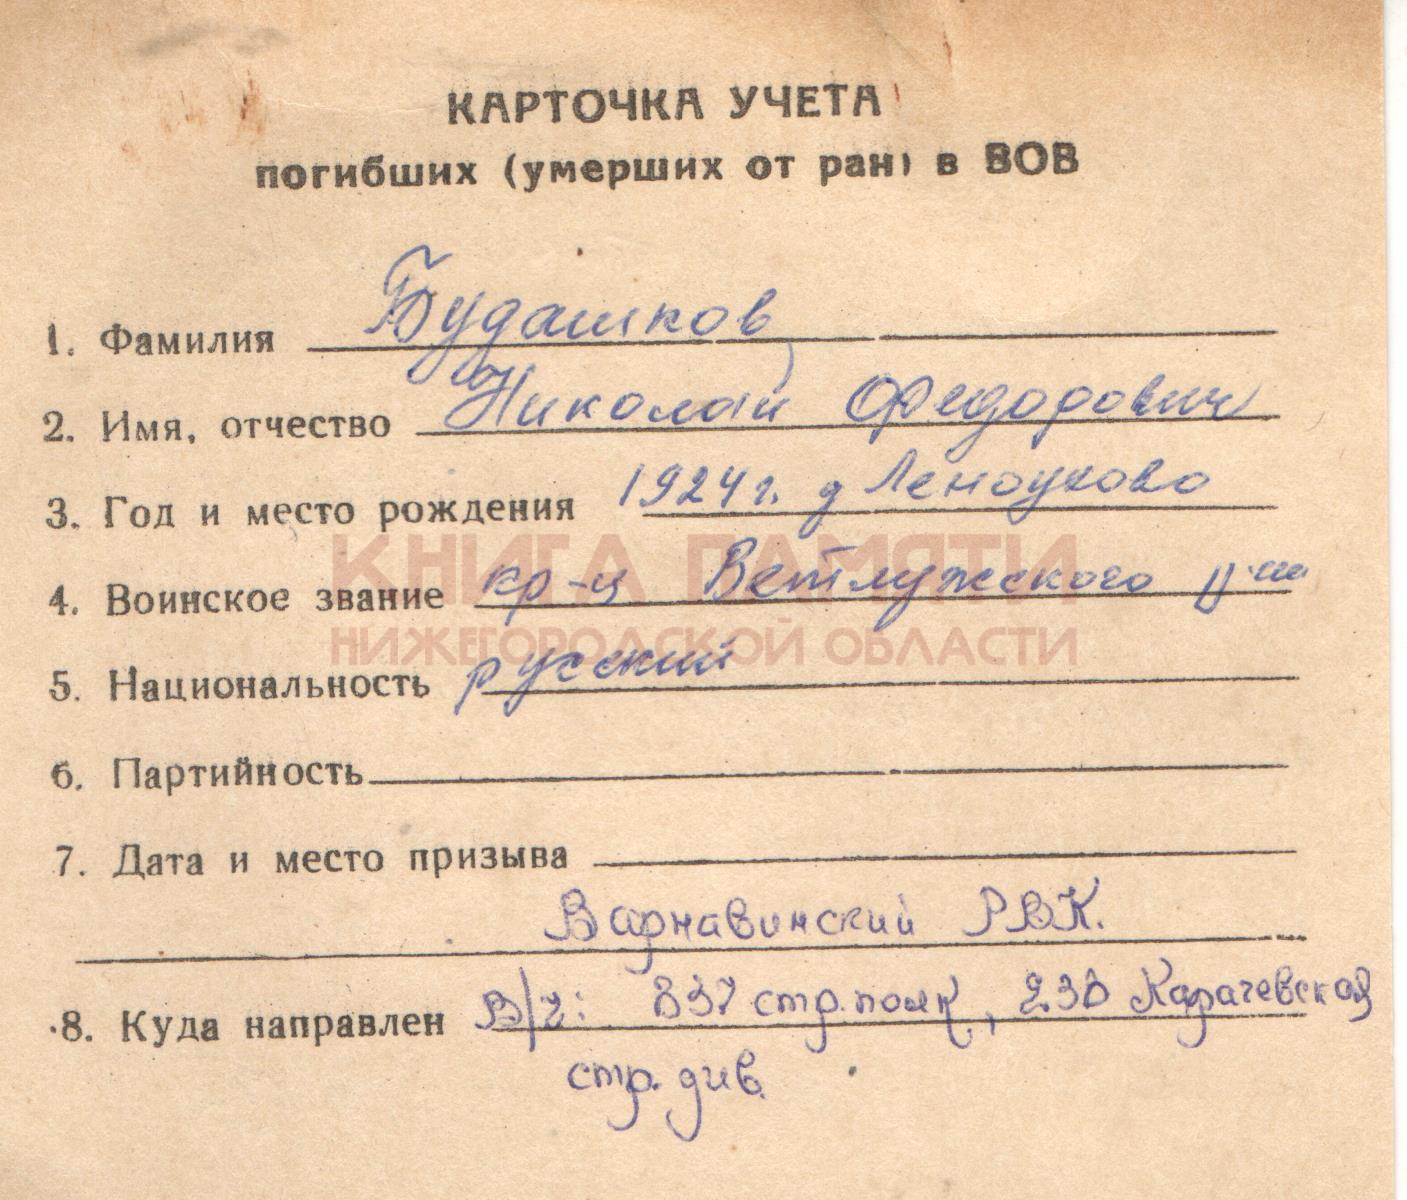 КАРТОЧКА УЧЕТА
погибших (умерших от ран) в ВОВ
1. Фамилия Будашков
2. Имя, отчество Николай Федорович
3. Год и место рождения 1924 г. д
4. Воинское звание кр-ц Ветлужского
КНИГА ПАМЯТИ
НИЖЕГОРОДСКОЙ ОБЛАСТИ
5. Национальность русский
6. Партийность
7. Дата и место призыва
Варнавинский РВК.
8. Куда направлен В/ч: 837 стр. полк, 238 Карачевской
стр. див.